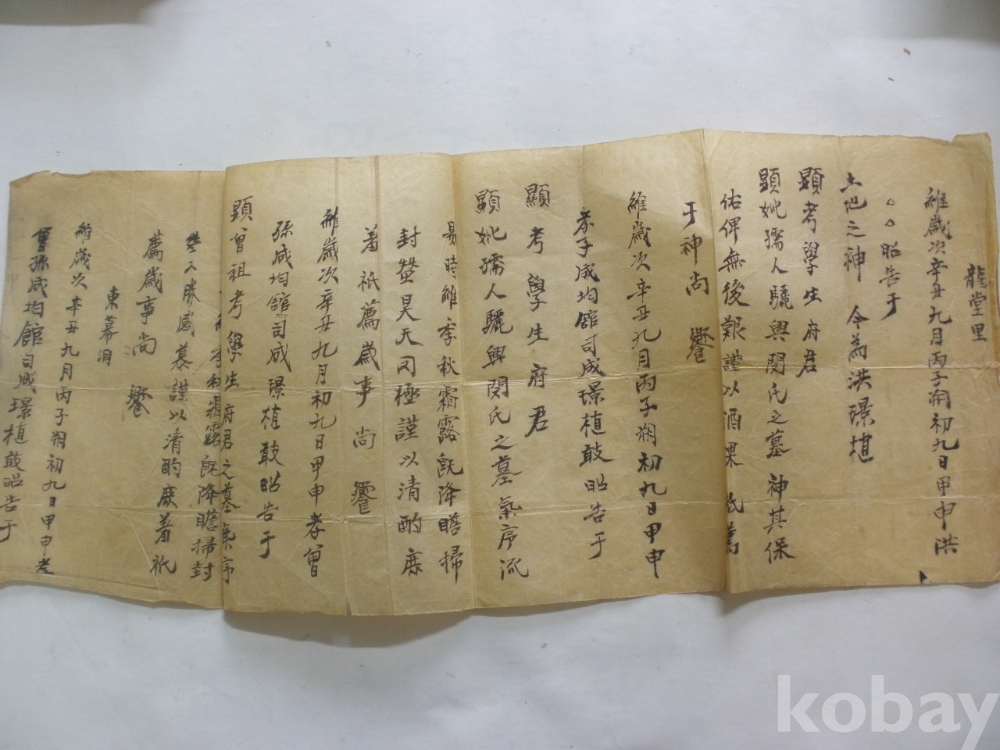 龍堂里
維歲次辛丑九月丙子朔初九日甲申洪
○○昭告于
土地之神 今為洪璟植
顯考學生府君
顯妣孺人驪興閔氏之墓 神其保
佑俾無後艱謹以酒果 祇薦
于神尚 饗
維歲次辛丑九月丙子朔初九日甲申
孝子成均館司成璟植敢昭告于
顯考學生府君
顯妣孺人驪興閔氏之墓氣序流
易時維季秋霜露旣降瞻掃
封塋昊天罔極謹以清酌庶
羞祇薦歲事 尚 饗
維歲次辛丑九月初九日甲申孝曾
孫成均館司成璟植敢昭告于
顯曾祖考學生府君之墓氣序
季秋霜露旣降瞻掃封
塋不勝感慕謹以清酌庶羞祇
薦歲事尚 饗
東幕洞
維歲次辛丑九月丙子朔初九日甲申孝
曾孫成均館司成璟植敢昭告于
kobay